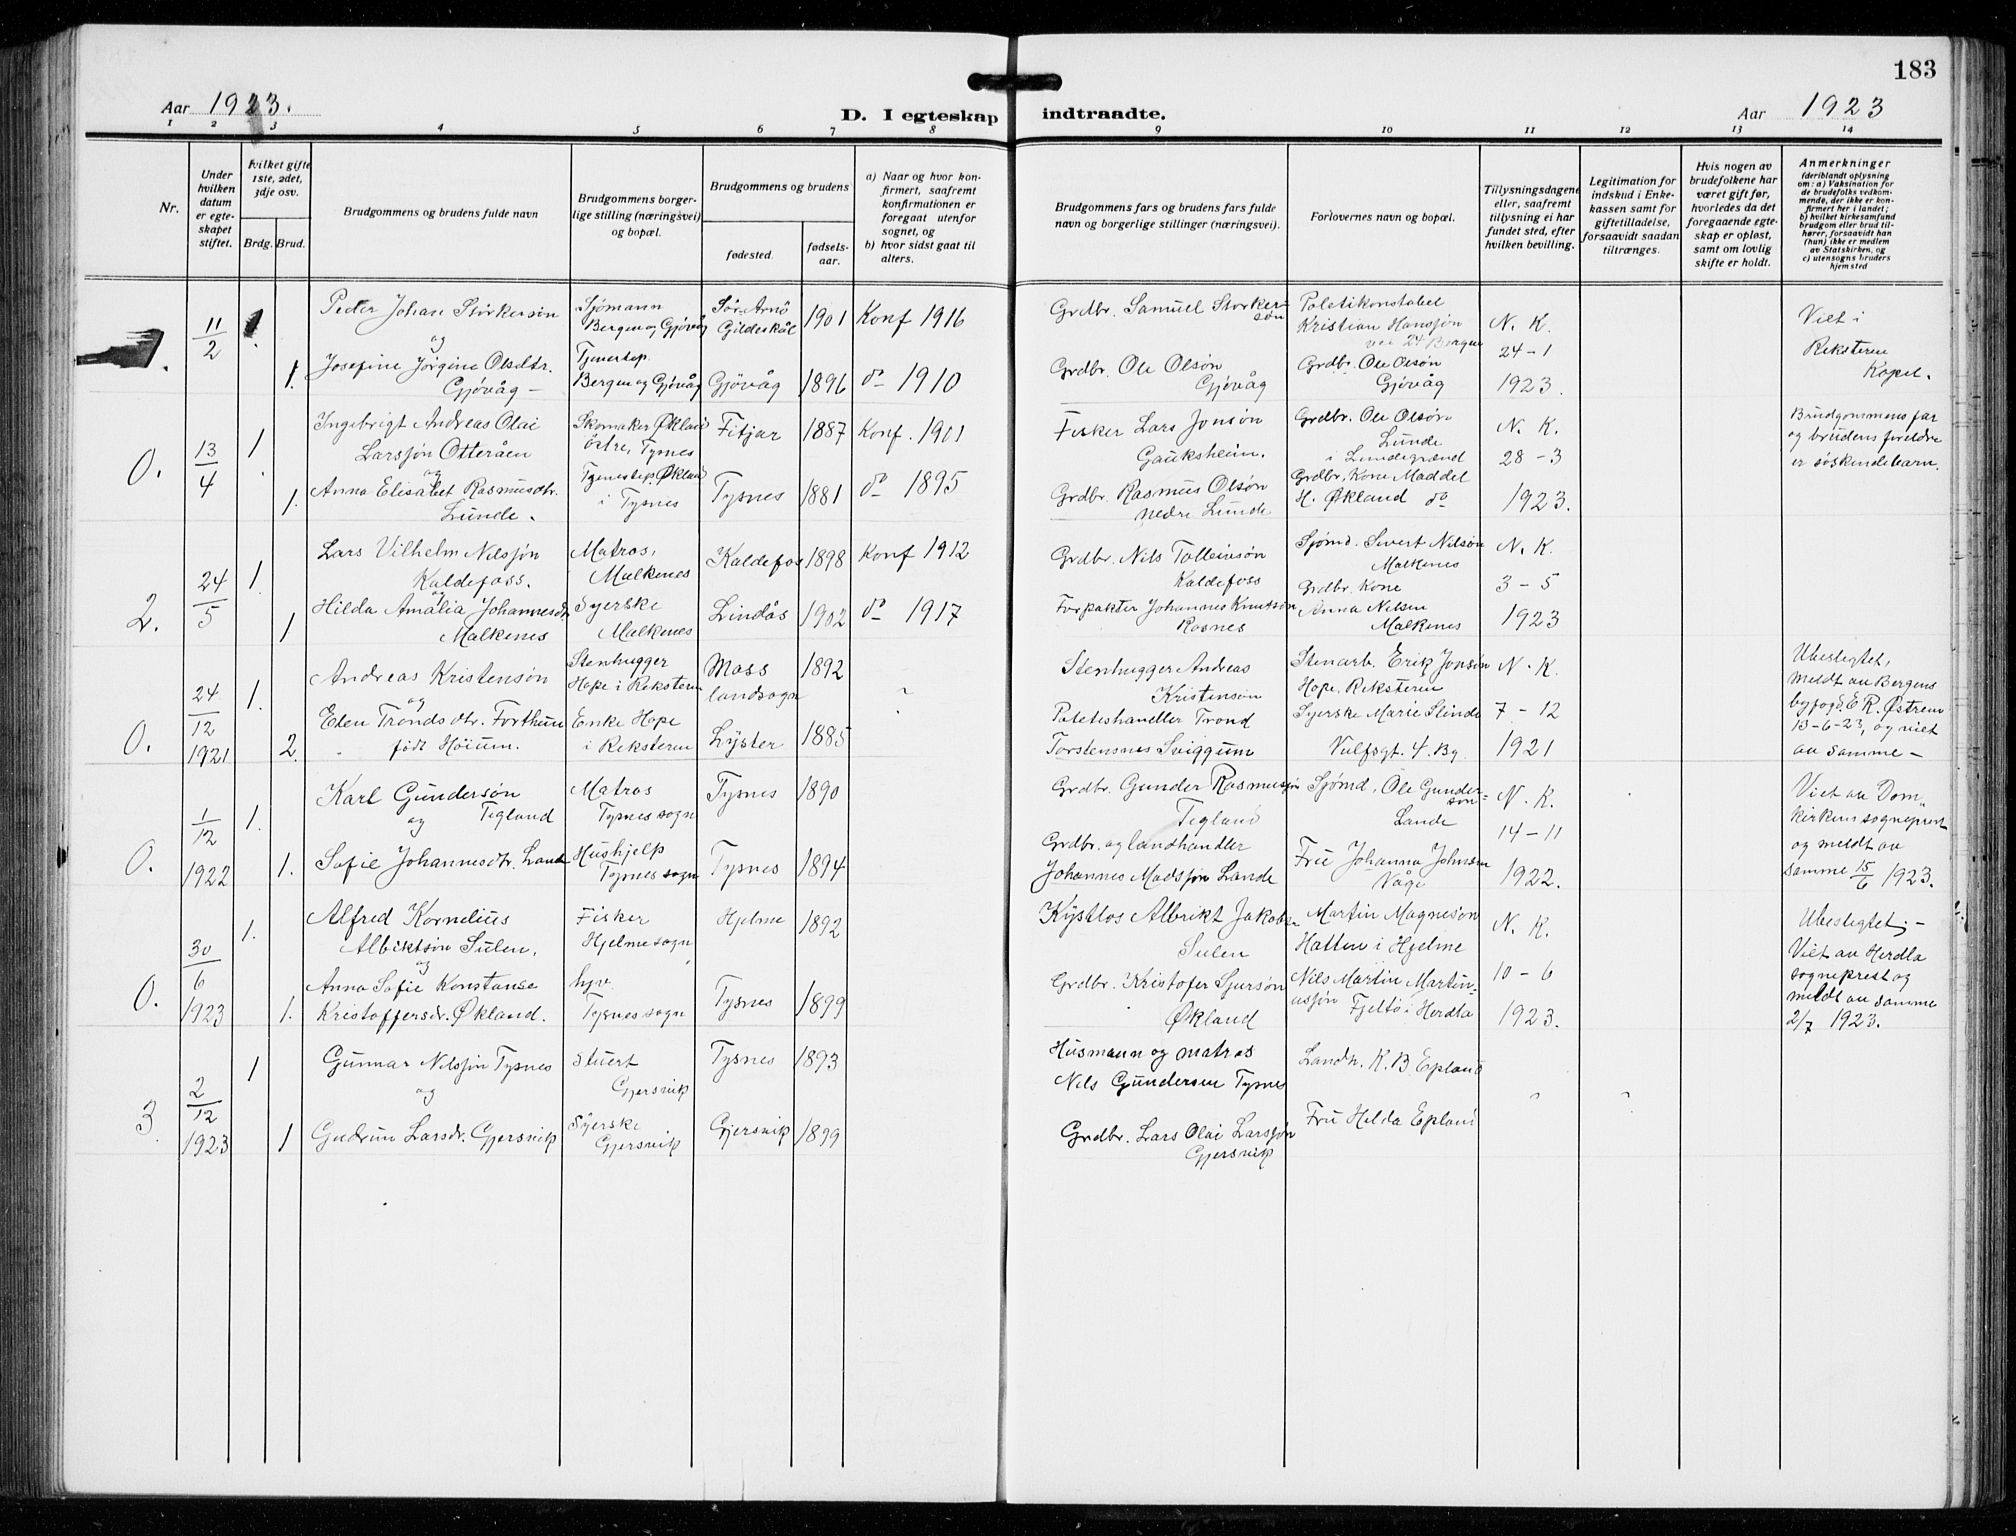 183
Aar 1923.
D. I egteskap indtraadte.
Aar 1923
1 2 3 4 5 6 7 8 9 10 11 12 13 14
Nr.
Under hvilken datum er egteskapet stiftet.
Hvilket gifte 1ste, 2det, 3dje osv.
Brdg. Brud.
Brudgommens og brudens fulde navn
Brudgommens borgerlige stilling (næringsvei) og bopæl.
Brudgommens og brudens
fødested.
fødselsaar.
a) Naar og hvor konfirmert, saafremt konfirmationen er foregaat utenfor sognet, og
b) hvor sidst gaat til alters.
Brudgommens fars og brudens fars fulde navn og borgerlige stillinger (næringsvei).
Forlovernes navn og bopæl.
Tillysningsdagene eller, saafremt tillysning ei har fundet sted, efter hvilken bevilling.
Legitimation for indskud i Enkekassen samt for giftetilladelse, forsaavidt saadan tiltrænges.
Hvis nogen av brudefolkene har været gift før, hvorledes da det foregaaende egteskap er opløst, samt om lovlig skifte er holdt.
Anmerkninger (deriblandt oplysning om: a) Vaksination for de brudefolks vedkommende, der ikke er konfirmert her i landet; b) hvilket kirkesamfund brudgom eller brud tilhører, forsaavidt han (hun) ikke er medlem av Statskirken, og c) utensogns bruders hjemsted
1. 11/2
Peder Johan Störkersön
og
Josefine Jörgine Olsdtr.
Gjövåg —
1.
Sjömann
Bergen og Gjövåg
Tjenestep.
Bergen og Gjövåg
Sör Arnö
Gildeskål
1901
Konf 1916
Gjövåg 1896 do 1910
Grdbr. Samuel Storkersön
Grdbr. Ole Olsön
Gjövåg
Politikonstabel
Kristian Hansjön
vei 24 Bergen
Grdbr. Ole Olsön
Gjövåg
N. K.
24-1
1923.
Viet i
Reksteren
Kapel.
0. 13/4 1
Ingebrigt Andreas Olai
Larsjön Otteråen
og
Anna Elisabet Rasmusdtr.
Lunde.
1.
Skomaker Økland
östre, Tysnes
Tjenestep. Økland
i Tysnes
Fitjar 1887 Konf. 1901
Tysnes 1881 do 1895
Fisker Lars Jonsön
Gauksheim.
Grdbr. Rasmus Olsön
nedre Lunde
Grdbr. Ole Olsön
Lunde
i Lundegrend
Grdbr. Kone Maddel
H. Økland do
N. K.
28-3
1923.
Brudgommens far
og brudens foreldre
er söskendebarn.
2. 24/5 1.
Lars Vilhelm Nilsjön
Kaldefoss.
og
Hilda Amalia Johannesdtr
Malkenes
1
Matros,
Malkenes
Syerske
Malkenes
Kaldefos 1898 Konf 1912
Lindås 1902 do 1917
Grdbr. Nils Tolleivsön
Kaldefoss
Forpakter Johannes Knutsön
Rosnes
Sjömd. Sivert Nilsön
Malkenes
Grdbr. Kone
Anna Nilsen
Malkenes
N. K.
3-5
1923
0. 24/12 1921 1.
Andreas Kristensön
og
Eten Tronds dtr. Forthun
födt Höium.
2.
Stenhugger
Hope i Reksteren
Enke Hope
i Reksteren
Moss
landsogn
1892
Lyster 1885
Stenhugger Andreas
Kristensön
Potetishandler Trond
Torstensnes Sviggum
Stenarb. Erik Jonsön
Hope. Reksteren
Syerske Marie Slinde
Vulfsgt. 4. Bg
N. K.
7-12
1921
Ubeslegtet,
meldt av Bergens
byfogd E. R. Østrem
13-6-23, og viet
av samme —
0. 1/12 1922 1.
Karl Gundersön
og Tegland
Sofie Johannesdtr. Lande
1.
Matros
Tysnes sogn
Hushjelp
Tysnes sogn
Tysnes 1890
Tysnes 1894
Grdbr. Gunder Rasmussön
Tegland
Grdbr. og landhandler
Johannes Madsjön Lande
Sjömd, Ole Gundersön
Lande
Fru Johanna Johnsen
Våge
N. K.
14-11
1922.
Viet av Domkirkens sogneprest
og meldt av
samme 15/6 1923.
0. 30/6 1923 1.
Alfred Kornelius
Albiktsön Sulen.
og
Anna Sofie Konstanse
Kristoffersdr. Økland.
1.
Fisker
Hjelme sogn
hjv.
Tysnes sogn
Hjelme 1892
Tysnes 1899
Kystlos Albrikt Jakobs
Sulen
Grdbr. Kristofer Sjursön
Økland
Martin Magnesön
Hatten i Hjelme
Nils Martin Martinussjön
Fjeltö i Herdla
N. K.
10-6
1923.
Ubeslegtet; —
Viet av Herdla
sogneprest og
meldt av samme
2/7 1923.
3. 2/12 1923 1
Gunnar Nilsjön Tysnes
og
Gudrun Larsdr. Gjersvik
1
Stuert
Gjersvik
Syerske
Gjersvik
Tysnes 1893
Gjersvik 1899
Husmann og matros
Nils Gundersen Tysnes
Grdbr. Lars Olai Larsjön
Gjersvik
Landh. K. B. Epland
Fru Hilda Epland